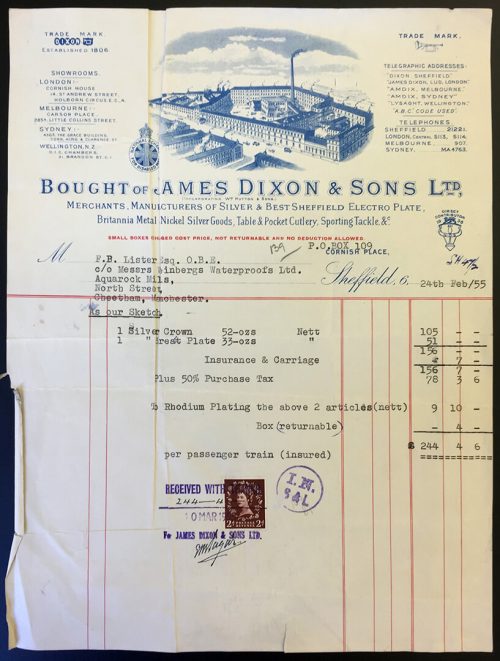 TRADE MARK.
DIXON
ESTABLISHED 1806.
SHOWROOMS.
LONDON:
CORNISH HOUSE
14, ST ANDREW STREET,
HOLBORN CIRCUS E.C.4.
MELBOURNE:
CARSON PLACE,
285A, LITTLE COLLINS STREET.
SYDNEY:
YORK, KING & CLARENCE ST
WELLINGTON, N.Z.
D.I.C. CHAMBERS,
31, BRANDON ST.
TRADE MARK.
TELEGRAPHIC ADDRESSES:
"DIXON SHEFFIELD"
"JAMES DIXON, LUD, LONDON"
"AMDIX, MELBOURNE"
"AMDIX, SYDNEY"
"LYSAGHT, WELLINGTON"
"A.B.C." CODE USED.
TELEPHONES
SHEFFIELD 21221.
LONDON, CENTRAL, 5113, 5114
MELBOURNE, 907.
SYDNEY, MA4763.
BOUGHT OF JAMES DIXON & SONS LTD,
(INCORPORATING WM HUTTON & SONS)
MERCHANTS, MANUFACTURERS OF SILVER & BEST SHEFFIELD ELECTRO PLATE,
Britannia Metal Nickel Silver Goods, Table & Pocket Cutlery, Sporting Tackle, &c.
SMALL BOXES CHARGED COST PRICE, NOT RETURNABLE AND NO DEDUCTION ALLOWED
139/
P.O.BOX 109
CORNISH PLACE,
M F.B. Lister Esq. O.B.E.
c/o Messrs inbergs Waterproofs Ltd.
Aquarock Mils,
North Street,
Cheetham, Machester.
Sheffield, 6, 24th Feb/55
As our Sketch
1 Silver Crown 52-ozs Nett 105 - -
1 " Brest Plate 33-ozs " 51 - -
156 - -
Insurance & Carriage 7 -
156 7 -
Plus 50% Purchase Tax 78 3 6
To Rhodium Plating the above 2 articles(nett) 9 10 -
Box (returnable) - 4 -
244 4 6
per passenger train (insured)
RECEIVED WITH
244-4
0 MAR
For JAMES DIXON & SONS LTD.
I.N.
S & L